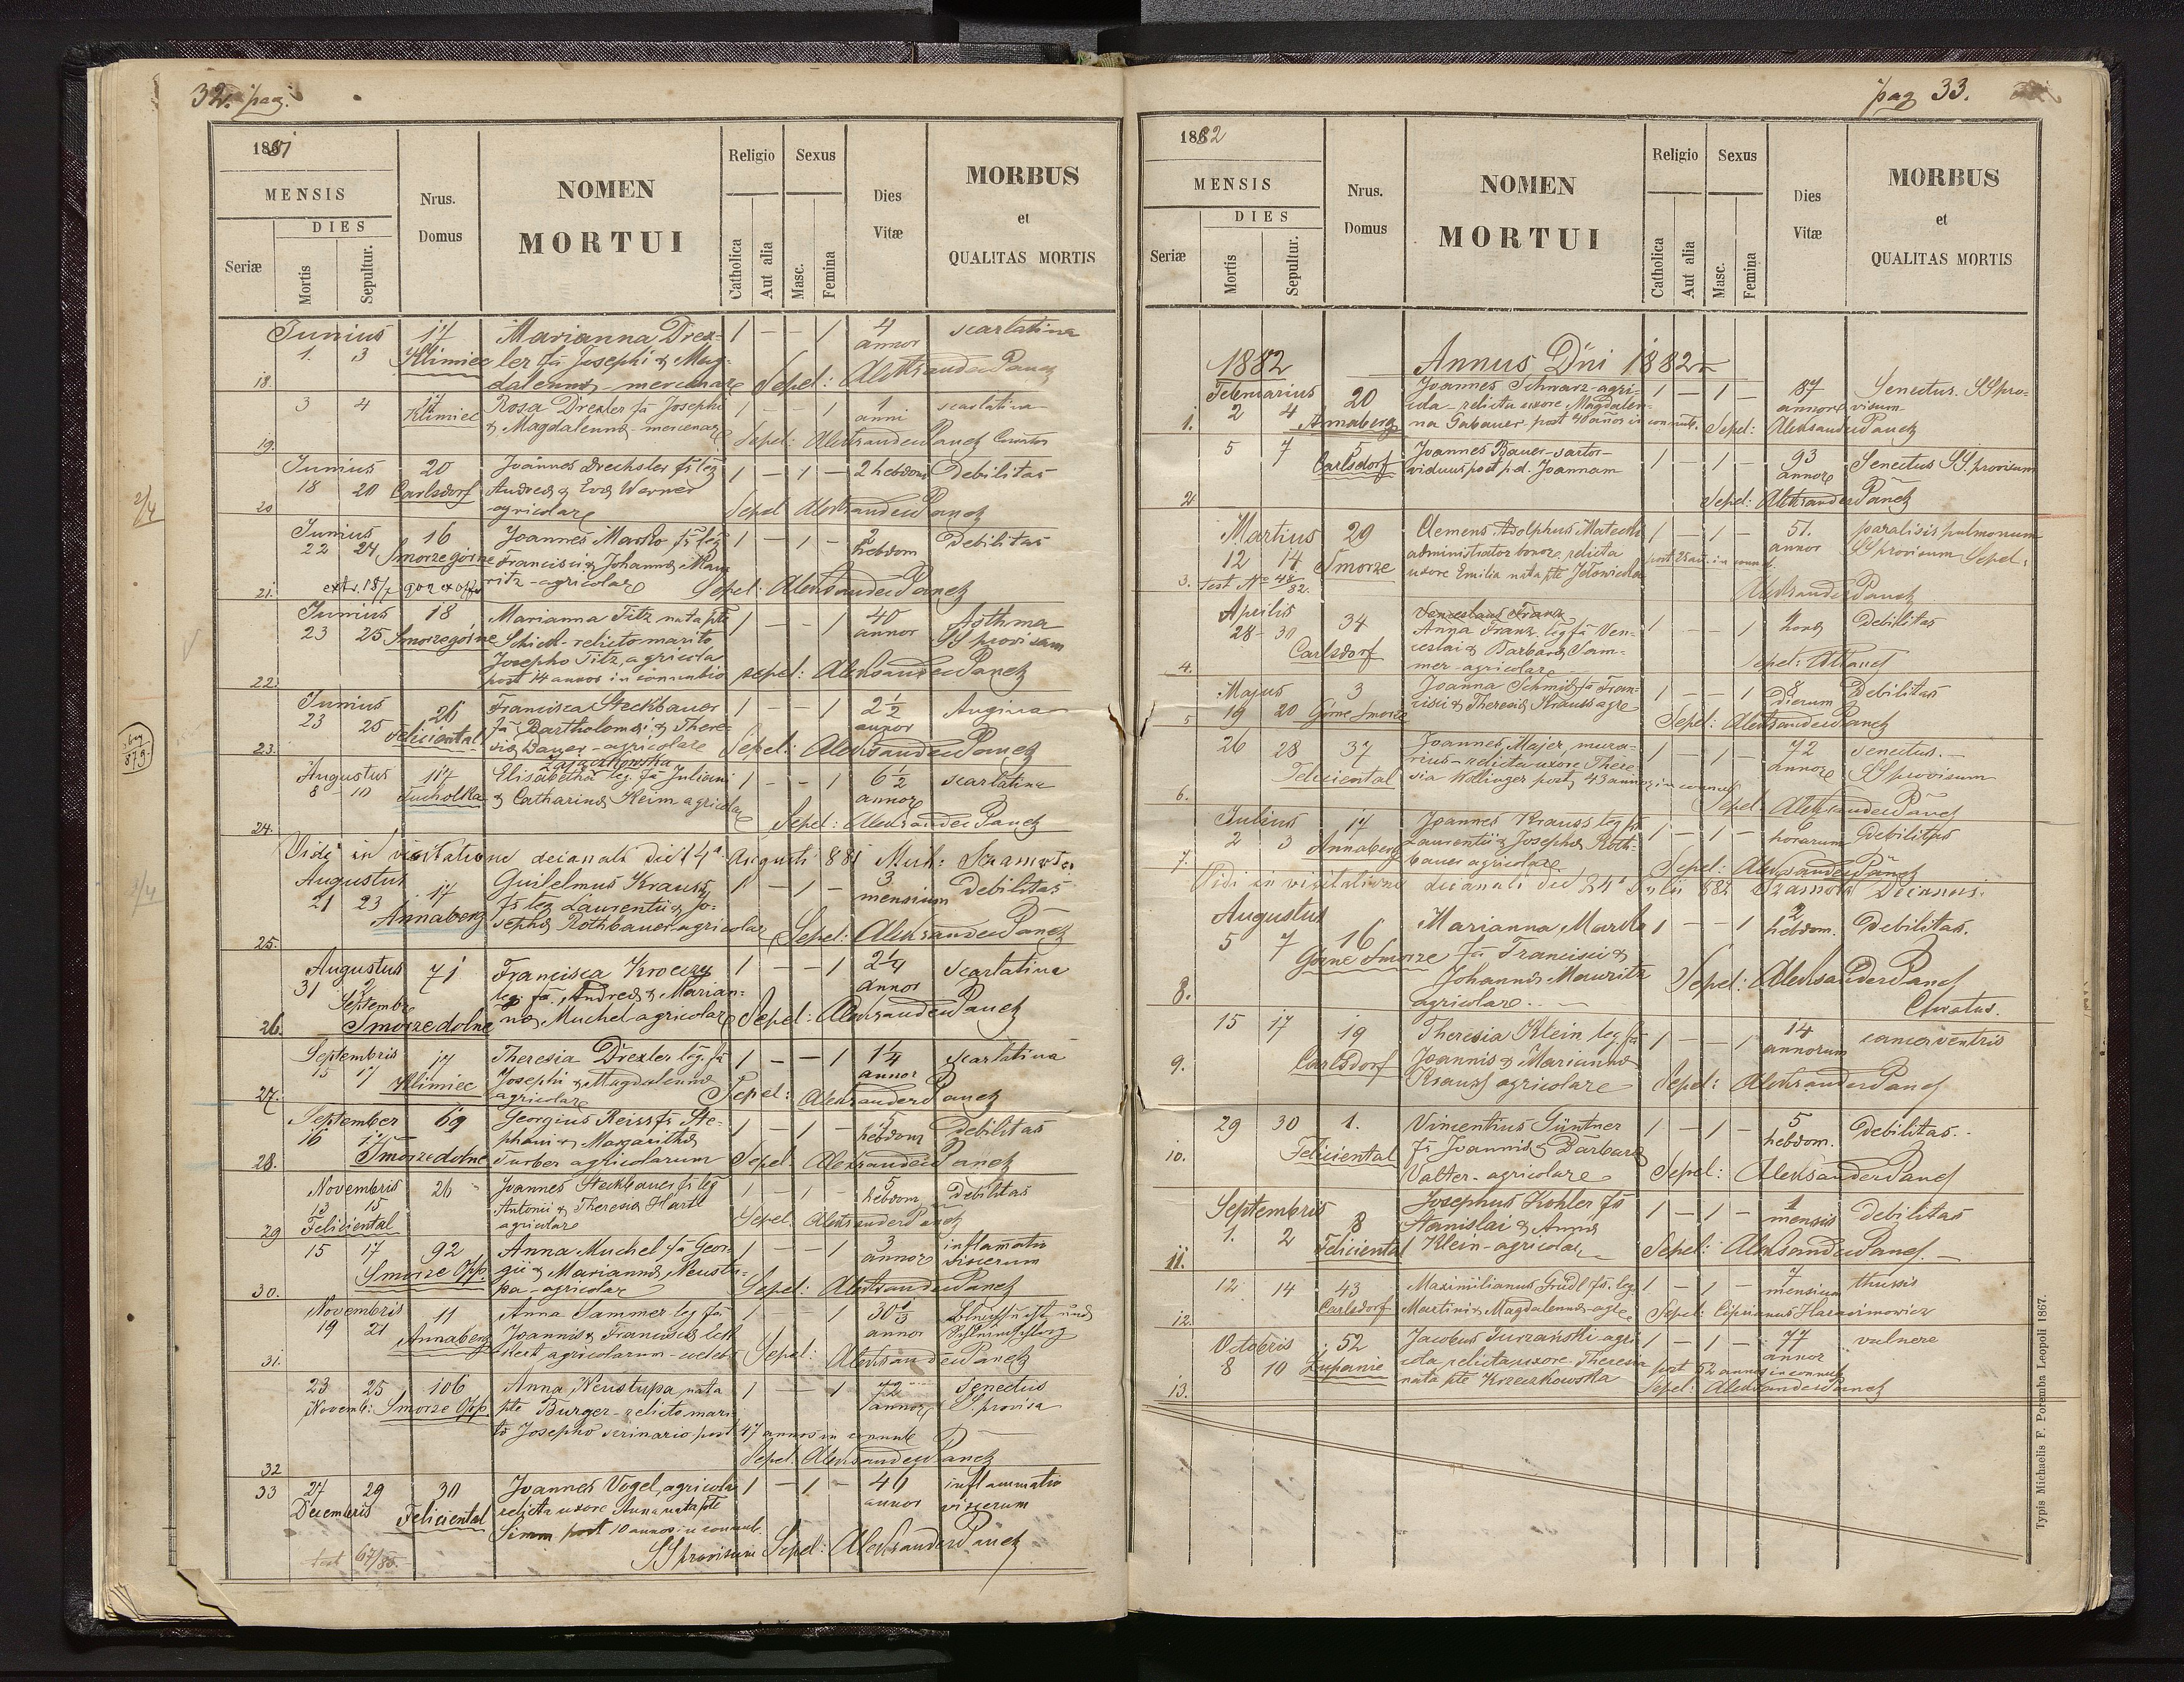 32. pag.
1881
MENSIS
DIES
Seriæ
Mortis
Sepultur.
Nrus.
Domus
NOMEN
MORTUI
Religio
Catholica
Aut alia
Sexus
Masc.
Femina
Dies
Vitæ
MORBUS
et
QUALITAS MORTIS
Junius 17 Marianna Drex- 1 — — 1 4 scarlatina
1. 3 Klimiec ler fa Josephi & Mag- annor
18. dalenna mercenar Sepel: Aleksander Panek
3 4 17 Rosa Drexler fa Josephi 1 — — 1 1 scarlatina
Klimiec & Magdalenna mercenar anni
19. Sepel: Aleksander Panek Curatus
Junius 20 Joannes Drechsler fs leg 1 — 1 — 2 hebdom Debilitas
18 20 Carlsdorf Andrea & Eva Werner
20 agricolare Sepel Aleksander Panek
Junius 16 Joannes Marsko fs leg 1 — 1 — 2 Debilitas
22 24 Smorze gorne Francisci & Johanna Mau hebdom
21. ritz - agricolare Sepel: Aleksander Panek
Junius 18 Marianna Titz nata pte 1 — — 1 40 Asthma
23 25 Smorze gorne Schick - relicto marito annor SS provisam
Josepho Titz, agricola
22. post 14 annos in connubio sepel: Aleksander Panek
Junius 26 Francisca Steckbauer 1 — — 1 2 1/2 Angina
23 25 Feliciental fa Bartholomæi & There- annor
23. sia Bauer - agricolare Sepel: Aleksander Panek
Zajaczkowska
Augustus 117 Elisabetha leg. fa Juliani 1 — — 1 6 1/2 scarlatina
8 - 10 Tucholka & Catharina Keim agricolar annor
24. Sepel: Aleksander Panek
Vidi in visitatione decanali die 14a Augusti 881
Augustus 17 Guilelmus Krauss 1 — 1 — 3 Debilitas
21 23 Annaberg fs leg Laurentii & Jo- mensium
25. sepha Rothbauer agricolar Sepel: Aleksander Panek
Augustus 71 Francisca Kroczy 1 — — 1 2 1/4 scarlatina
31 2 leg. fa. Andrea & Marian- annor
Septembr
26. Smorze dolne na Muchel agricolar Sepel: Aleksander Panek
Septembris 17 Theresia Drexler leg. fa 1 — — 1 1 1/4 scarlatina
15 17 Klimiec Josephi & Magdalenna annor
27. agricolar Sepel: Aleksander Panek
September 69 Georgius Reiss fs Ste- 1 — 1 — 5 Debilitas
16 17 phani & Margaritha hebdom
28. Smorze dolne Furber agricolarum Sepel Aleksander Panek
Novembris 26 Joannes Steckbauer fs leg 1 — 1 — 5 Debilitas
13 15 Antonii & Theresia Hartl hebdom
29 Feliciental agricolare Sepel. Aleksander Panek
15 17 92 Anna Muchel fa Geor- 1 — — 1 3 inflamatio
Smorze Opp. gii & Marianna Neustu- annor viscerum
30. pa - agricolar Sepel: Aleksander Panek
Novembris 11 Anna Sammer leg fa 1 — — 1 30 1/3
19 21 Annaberg Joannis & Francisca annor
31. agricolarum - Sepel: Aleksander Panek
23 25 106 Anna Neustupa nata 1 — — 1 72 senectus
Novemb: Smorze Opp. pte Burger - relicto mari- annor S. provisa
to Josepho serinario post 47 annos in connub
32 Sepel. Aleksander Panek
33 27 29 30 Joannes Vogel, agricola 1 — 1 — 46 inflammatio
Decembris Feliciental relicta uxore Anna nata pte annor viscerum
Simm post 10 annos in connub.
test 67/85. SS provisum Sepel: Aleksander Panek
pag 33.
1882
MENSIS
DIES
Seriæ
Mortis
Sepultur.
Nrus.
Domus
NOMEN
MORTUI
Religio
Catholica
Aut alia
Sexus
Masc.
Femina
Dies
Vitæ
MORBUS
et
QUALITAS MORTIS
1882 Annus Dni 1882
Februarius 20 Joannes Schwarz - agri- 1 — 1 — 87 Senectus. SS pro-
2 4 cola - relicta uxore Magdalen- annor visum
1. Annaberg na Gabauer post 40 annos in connub. Sepel: Aleksander Panek
5 7 5 Joannes Bauer - sartor - 1 1 — 93 Senectus SS provisum
Carlsdorf viduus post p.d. Joannam annor
2 Sepel: Aleksander Panek
Martius 29 Clemens Adolphus Matecki 1 — 1 — 51. paralisis pulmonum
12 14 Smorze administrator bonor relicta post 25 an. in connub annor SS provisum Sepel:
3. test No 48/82. uxore Emilia nata pte Aleksander Panek
Aprilis 34 Venceslaus Franz
28 - 30 Anna Franz. leg fa Ven- 1 — — 1 Debilitas
Carlsdorf ceslai & Barbara Sam-
4. mer - agricolar Sepel: APanek
Majus 3 Joanna Schmidt fa Fran- 1 — — 1 8 Debilitas
5 19 20 Gorne Smorze cisci & Theresia Krauss agre Dierum Sepel: Aleksander Panek
26 28 37 Joannes Majer, mura- 1 — 1 — 72 senectus. —
Feliciental rius - relicta uxore There- annor SS provisum
6. sia Wollinger post 43 annos in connub Sepel Aleksander Panek
Julius 17 Joannes Krauss leg fs 1 — 1 — 6 Debilitas
2 3 Annaberg Laurentii & Josepha Roth- horarum
7. bauer agricolare Sepel: Aleksander Panek
Vidi in visitatione decanali die 24a Julii 882 Szamota Decanus.
Augustus Marianna Marsko 1 — — 1 2 Debilitas.
5 7 16 fa Francisci & hebdom.
Gorne Smorze Johanna Mauritz Sepel: Aleksander Panek
8. agricolare. — Curatus.
15 17 19 Theresia Klein leg. fa 1 — — 1 14 cancer ventris
9. Carlsdorf Joannis & Marianna annorum
Krauss agricolare Sepel: Aleksander Panek
29 30 1. Vincentius Güntner 1 — 1 — 5 Debilitas. -
10. Feliciental fs Joannis & Barbara hebdom.
Valter - agricolare Sepel: Aleksander Panek
Septembris 8 Josephus Kohler fs 1 — 1 — 1 Debilitas
1. 2 Stanislai & Anna mensis
11. Feliciental Klein - agricolar Sepel: Aleksander Panek. —
12. 14 43 Maximilianus Gridl fs. leg. 1 — 1 — 7 thussis
mensium
12. Carlsdorf Martini & Magdalenna - agre Sepel: Ciprianus Harasimowicz
Octobris 52 Jacobus Turzański agri- 1 — 1 — 77 vulnere
8 10 Zupanie cola relicta uxore Theresia post 52 annos in connub annor
13. nata pte Krzeczkowska Sepel: Aleksander Panek
Typis Michaelis F. Poremba Leopoli 1867.